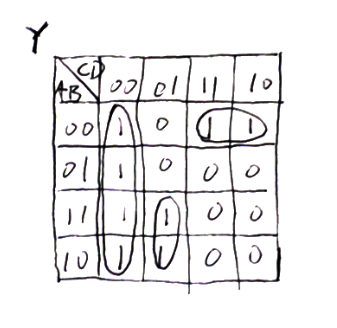 Y
CD 00 01 11 10
AB
00 1 0 1 1
01 1 0 0 0
11 1 1 0 0
10 1 1 0 0